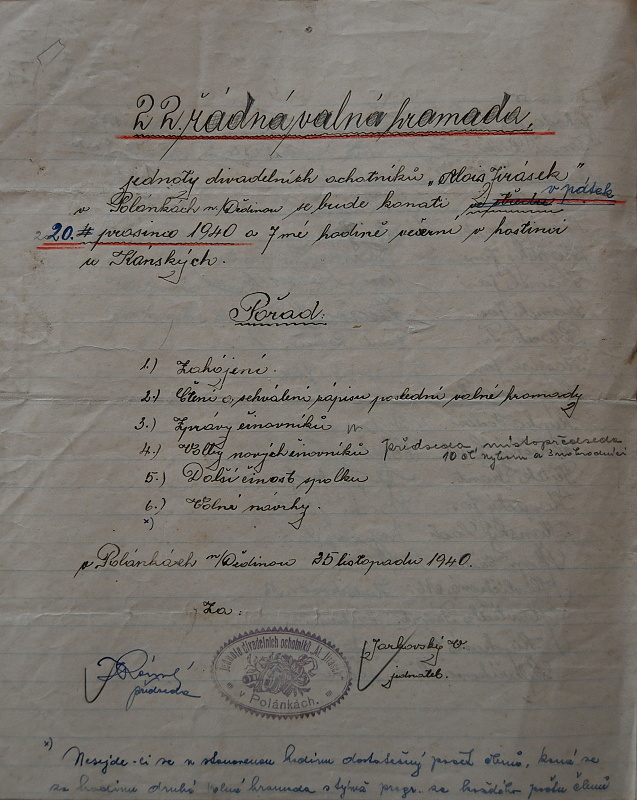 22. řádná valná hromada,
jednoty divadelních ochotníků „Alois Jirásek"
v Polánkách n/Dědinou se bude konati v pátek
20. prosince 1940 o 7mé hodině večerní v hostinci
u Kánských.
Pořad:
1.) Zahájení.
2.) Čtení a schválení zápisu poslední valné hromady
3.) Zprávy činovníků
4.) Volby nových činovníků předseda, místopředseda
10 čl. výboru a 3 náhradníci
5.) Další činost spolku
6.) Volné návrhy.
x)
v Polánkách n/Dědinou 25 listopadu 1940.
Za:
Jednota divadelních ochotníků „Al. Jirásek"
v Polánkách.
předseda
Jarkovský V.
jednatel.
x) Nesejde-li se v stanovenou hodinu dostatečný počet členů, koná se
za hodinu druhá valná hromada s týmž progr. za každého počtu členů